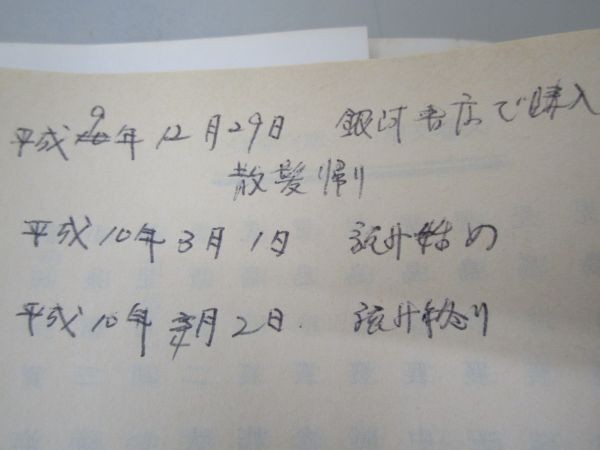 平成9年 12月29日 銀河書店で購入
散髪帰り
平成10年3月1日 読み始め
平成10年4月2日 読み終り